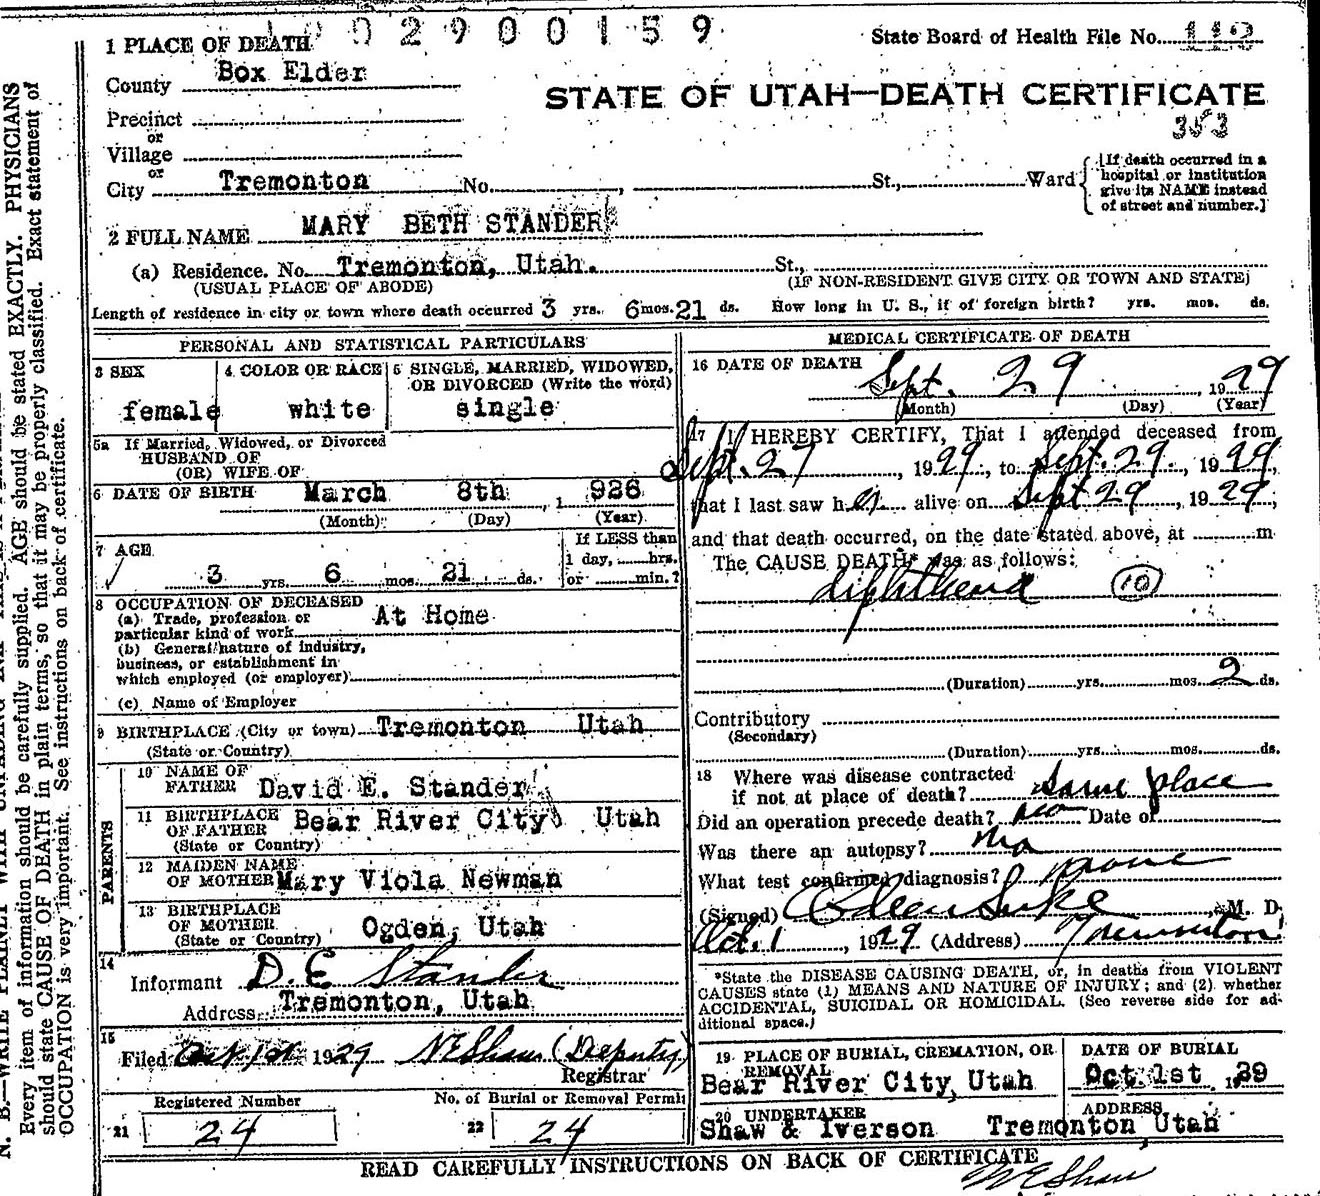 0 2 9 0 0 1 5 9
1 PLACE OF DEATH
State Board of Health File No. 113
County Box Elder
STATE OF UTAH—DEATH CERTIFICATE
353
Precinct
or
Village
or
City Tremonton No. , St., Ward
[If death occurred in a
hospital or institution
give its NAME instead
of street and number.]
2 FULL NAME MARY BETH STANDER
(a) Residence. No. Tremonton, Utah. St.,
(USUAL PLACE OF ABODE) (IF NON-RESIDENT GIVE CITY OR TOWN AND STATE)
Length of residence in city or town where death occurred 3 yrs. 6 mos. 21 ds. How long in U. S., if of foreign birth? yrs. mos. ds.
PERSONAL AND STATISTICAL PARTICULARS
3 SEX
female
4 COLOR OR RACE
white
5 SINGLE, MARRIED, WIDOWED,
OR DIVORCED (Write the word)
single
5a If Married, Widowed, or Divorced
HUSBAND OF
(OR) WIFE OF
6 DATE OF BIRTH March 8th , 1 926
(Month) (Day) (Year)
7 AGE
3 yrs. 6 mos. 21 ds.
If LESS than
1 day, hrs.
or min.?
8 OCCUPATION OF DECEASED
(a) Trade, profession or At Home
particular kind of work
(b) General nature of industry,
business, or establishment in
which employed (or employer)
(c) Name of Employer
9 BIRTHPLACE (City or town) Tremonton Utah
(State or Country)
PARENTS
10 NAME OF
FATHER David E. Stander
11 BIRTHPLACE
OF FATHER Bear River City Utah
(State or Country)
12 MAIDEN NAME
OF MOTHER Mary Viola Newman
13 BIRTHPLACE
OF MOTHER Ogden, Utah
(State or Country)
14
Informant D. E Stander
Address Tremonton, Utah
15
Filed Oct 1st 1929 N E Shaw (Deputy)
Registrar
Registered Number
21 24
No. of Burial or Removal Permit
22 24
MEDICAL CERTIFICATE OF DEATH
16 DATE OF DEATH
Sept. 29 , 19 29
(Month) (Day) (Year)
17 I HEREBY CERTIFY, That I attended deceased from
Sept. 27 , 19 29, to Sept. 29 , 19 29,
that I last saw h er alive on Sept 29 , 19 29;
and that death occurred, on the date stated above, at m
The CAUSE DEATH* was as follows:
diphtheria (10)
(Duration) yrs. mos. 2 ds.
Contributory
(Secondary)
(Duration) yrs. mos. ds.
18 Where was disease contracted
if not at place of death? same place
Did an operation precede death? no Date of
Was there an autopsy? no
What test confirmed diagnosis? none
(Signed) Luke M. D.
Oct. 1 , 1929 (Address) Tremonton
*State the DISEASE CAUSING DEATH, or, in deaths from VIOLENT
CAUSES state (1) MEANS AND NATURE OF INJURY; and (2) whether
ACCIDENTAL, SUICIDAL OR HOMICIDAL. (See reverse side for ad-
ditional space.)
19 PLACE OF BURIAL, CREMATION, OR
REMOVAL
Bear River City, Utah
DATE OF BURIAL
Oct. 1st , 29
20 UNDERTAKER
Shaw & Iverson
ADDRESS
Tremonton Utah
READ CAREFULLY INSTRUCTIONS ON BACK OF CERTIFICATE
N E Shaw
Every item of information should be carefully supplied. AGE should be stated EXACTLY. PHYSICIANS
should state CAUSE OF DEATH in plain terms, so that it may be properly classified. Exact statement of
OCCUPATION is very important. See instructions on back of certificate.